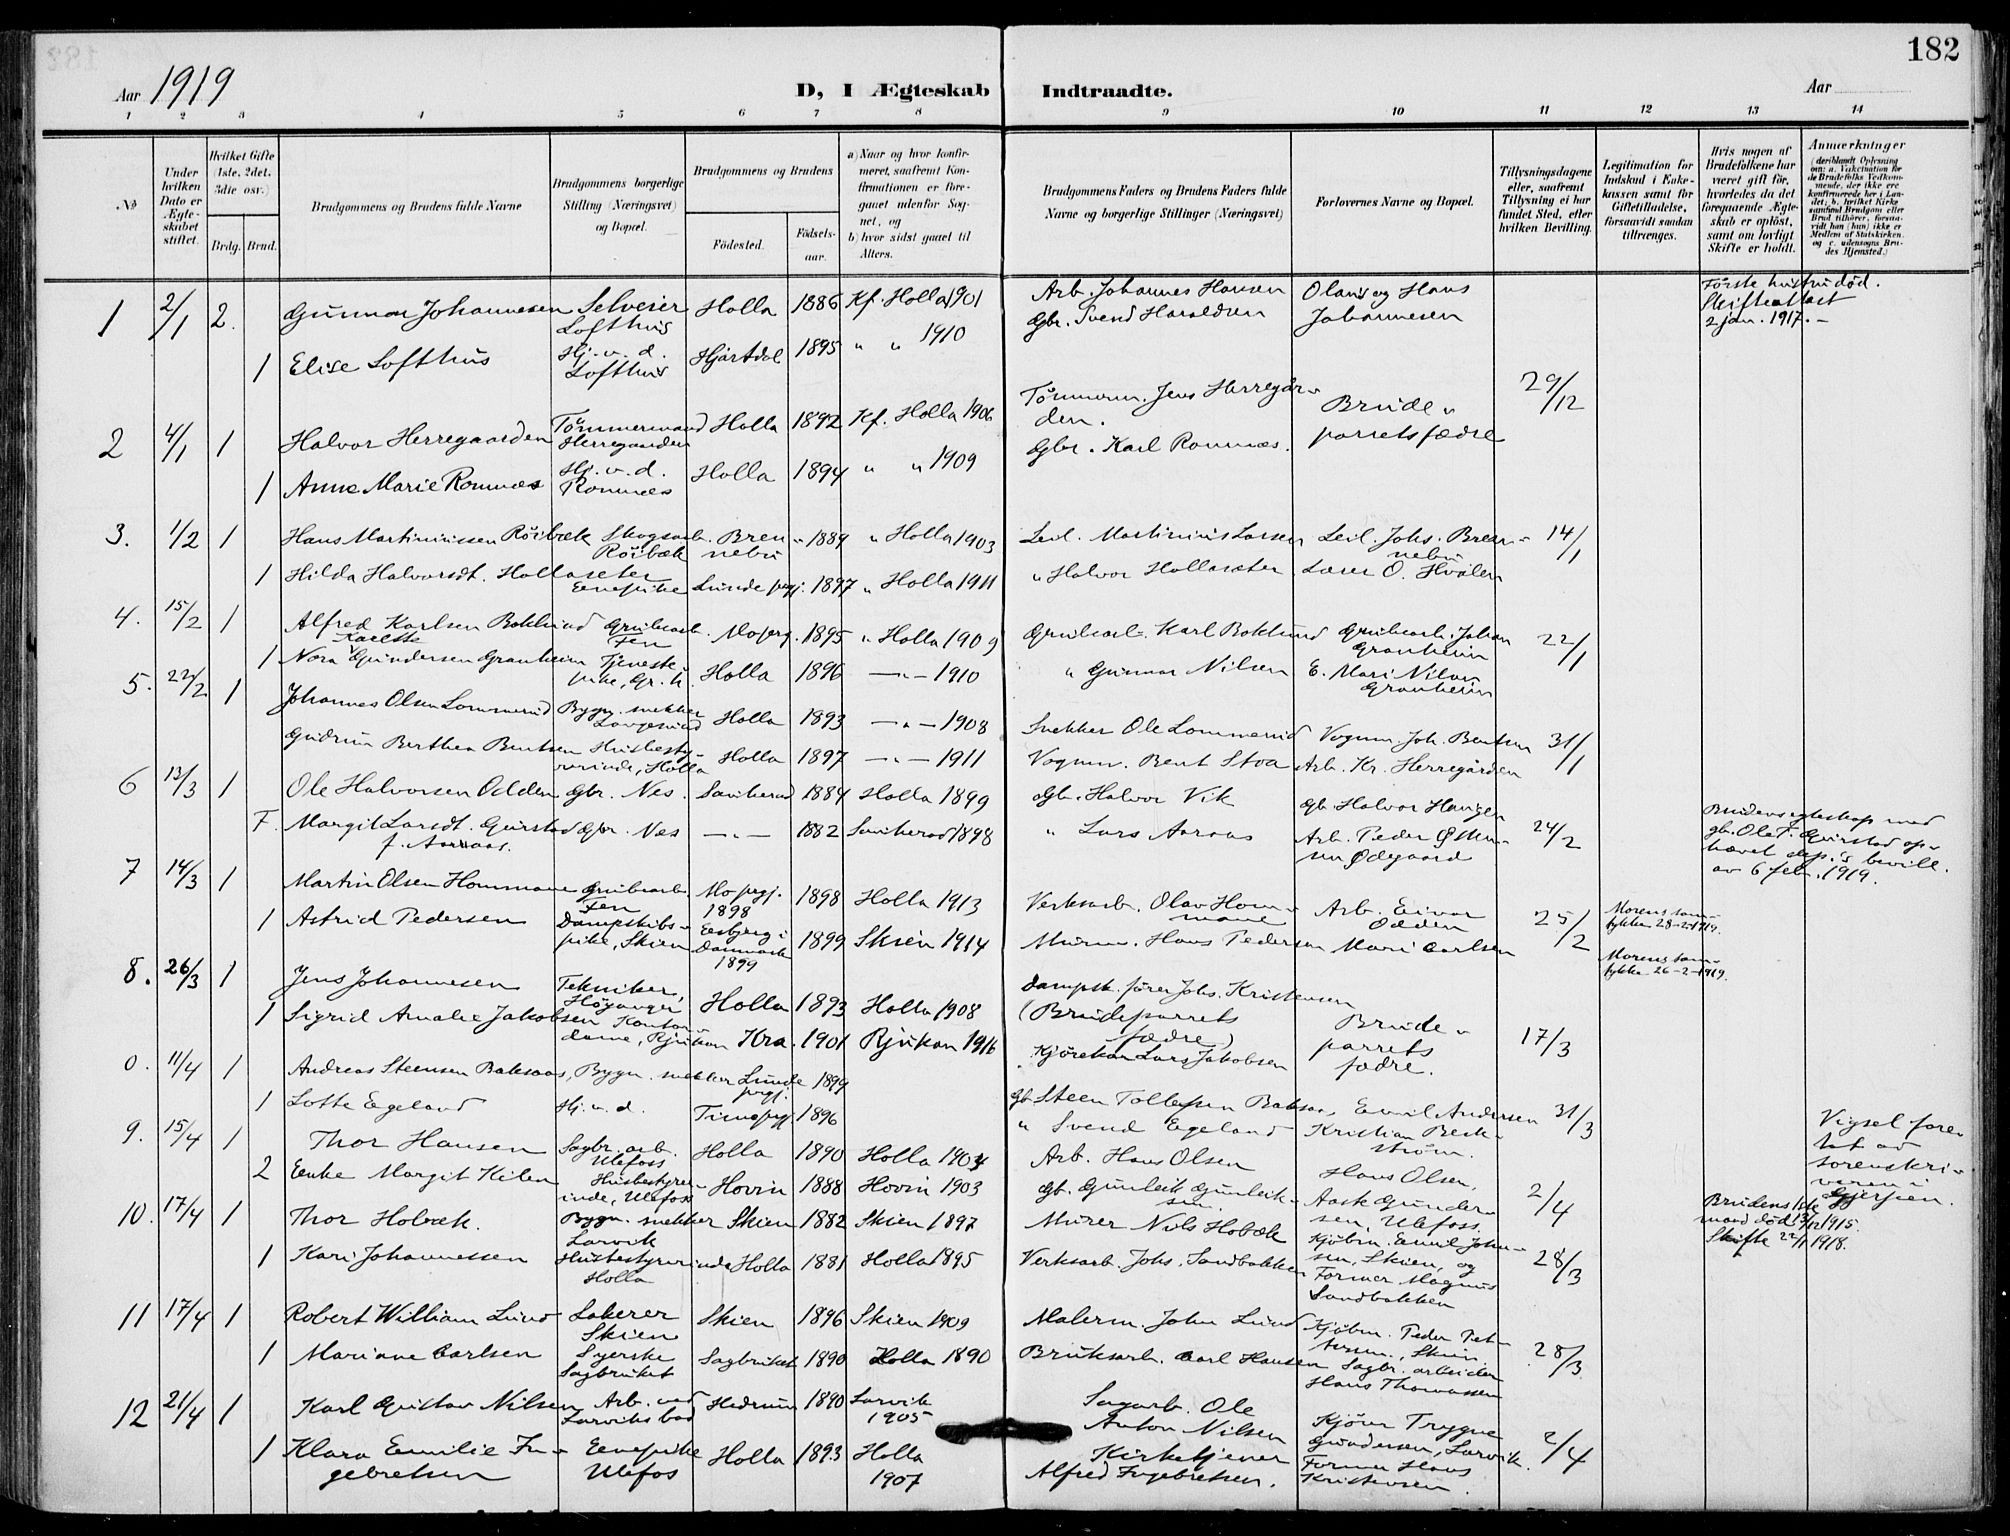 182
Aar 1919
D, I Ægteskab Indtraadte.
Aar
1 2 3 4 5 6 7 8 9 10 11 12 13 14
No
Under hvilken Dato er Ægteskabet stiftet.
Hvilket Gifte (1ste, 2det, 3die osv.)
Brdg. Brud.
Brudgommens og Brudens fulde Navne
Brudgommens borgerlige Stilling (Næringsvei) og Bopæl.
Brudgommens og Brudens
Fødested.
Fødsels-aar.
a) Naar og hvor konfirmeret, saafremt Konfirmationen er foregaaet udenfor Sognet, og
b) hvor sidst gaaet til Alters.
Brudgommens Faders og Brudens Faders fulde Navne og borgerlige Stillinger (Næringsvei)
Forlovernes Navne og Bopæl.
Tillysningsdagene eller, saafremt Tillysning ei har fundet Sted, efter hvilken Bevilling.
Legitimation for Indskud i Enkekassen samt for Giftetilladelse, forsaavidt saadan tiltrænges.
Hvis nogen af Brudefolkene har været gift før, hvorledes da det foregaaende Ægteskab er opløst, samt om lovligt Skifte er holdt.
Anmærkninger
1 2/1 2. Gunnar Johannesen Selveier Lofthus Holla 1886 Kf. Holla 1901 Arb. Johannes Hansen Olaus og Hans Johannesen Første hustru død. Skifteattest 2 jan. 1917.
1 Elise Lofthus Hj. v. d. Lofthus Hjartdal 1895 " " 1910 Gbr. Svend Haraldsen
2 4/1 1 Halvor Herregaarden Tømmermand Herregaarden Holla 1892 Kf. Holla 1906 Tømmerm. Jens Herregården. Brudeparrets fædre 29/12
1 Anne Marie Romnæs Hj. v. d. Romnæs Holla 1894 " " 1909 Gbr. Karl Romnæs.
3. 1/2 1 Hans Martiniussen Röibæk Skogsarb. Röibæk Brennebu 1889 " Holla 1903 Leil. Martinius Larsen Leil. Johs. Brennebu 14/1
1 Hilda Halvorsdt. Hollaseter Eenepike Lunde prgj. 1897 " Holla 1911 " Halvor Hollaseter Lærer O. Hvålen
4. 15/2 1 Alfred Karlsen Boklund Grubearb. Fen Mo prg. 1895 " Holla 1909 Grubearb. Karl Boklund Grubearb. Johan Granheim 22/1
1 Nora Gundersen Granheim Tjenestepike, Gr. h. Holla 1896 —"— 1910 " Gunnar Nilsen E. Mari Nilsen Granheim
5. 22/2 1 Johannes Olsen Lommerud Bygn. snekker Langesund Holla 1893 —"— 1908 Snekker Ole Lommerud Vognm. Joh. Bentsen 31/1
Gudrun Berthea Bentsen Husbestyrerinde, Holla Holla 1897 —"— 1911 Vognm. Bent Stoa Arb. Kr. Herregården
6 13/3 1 Ole Halvorsen Odden Gbr. Nes. Sauherad 1884 Holla 1899 Gb. Halvor Vik Gb. Halvor Haugen 24/2
F. Margit Larsdt. Gurstad f. Aarnaas. Gbr. Nes —"— 1882 Sauherad 1898 " Lars Aaraas Arb. Peder Østensen Ødegaard Brudens egteskap med gb. Ole F. Gurstad ophævet dep.'s bevill. av 6 febr. 1919.
7 14/3 1 Martin Olsen Hommane Grubearb. Fen Mo prgj. 1898 1898 Holla 1913 Verksarb. Olav Hommane Arb. Eivor Odden 25/2 Morens samtykke 28-2-1919.
1 Astrid Pedersen Dampskibspike, Skien Esbjerg i Danmark 1899 1899 Skien 1914 Murm. Hans Pedersen Mari Carlsen Morens samtykke 26-2-1919.
8. 26/3 1 Jens Johannesen Tekniker, Höganger Holla 1893 Holla 1908 Dampsk. fører Johs. Kristensen (Brudeparrets fædre) Brudeparrets fædre. 17/3
1 Sigrid Amalie Jakobsen Kontordame, Rjukan Kra. 1901 Rjukan 1916 Kjørekar Lars Jakobsen
0. 11/4 1 Andreas Steensen Baksaas, Bygn. snekker Lunde prgj. 1899 Gb. Steen Tollefsen Baksaas, Emil Andersen 31/3
1 Lotte Egeland Hj. v. d. Time prgj. 1896 " Svend Egeland Kristian Beckstrøm.
9. 15/4 1 Thor Hansen Sagbr. arb. Ulefoss Holla 1890 Holla 1904 Arb. Hans Olsen Hans Olsen, 2/4 Vigsel foretat av sorenskriveren i Gjerpen.
2 Enke Margit Kilen Husbestyrerinde, Ulefoss Hovin 1888 Hovin 1903 Gb. Gunleik Gunleiksen. Aask Gundersen, Ulefoss. Brudens 1ste mand død 13/12 1915. Skifte 22/1 1918.
10. 17/4 1 Thor Hobæk. Bygn. snekker Larvik Skien 1882 Skien 1897 Murer Nils Hobæk Kjøbm. Emil Johnsen, Skien, og Former Magnus Sandbakken 28/3
1 Kari Johannessen Husbestyrerinde Holla Holla 1881 Holla 1895 Verksarb. Johs. Sandbakken
11 17/4 1 Robert William Lund Lakerer Skien Skien 1896 Skien 1909 Malerm. John Lund Kjøbm. Peder Pettersen, Skien 28/3
1 Mariane Carlsen Syerske Sagbruket Sagbruket 1890 Holla 1890 Bruksarb. Carl Hansen Sagbr. arbeider Hans Thomassen
12 21/4 1 Karl Gustav Nilsen Arb. ved Larviks bad Hedrum 1890 Larvik 1905 Sagarb. Ole Anton Nilsen Kjøm Trygve Gundersen, Larvik. 2/4
1 Klara Emilie Ingebretsen Eenepike Ulefos Holla 1893 Holla 1907 Kirketjener Alfred Ingebretsen. Former Hans Kristensen.